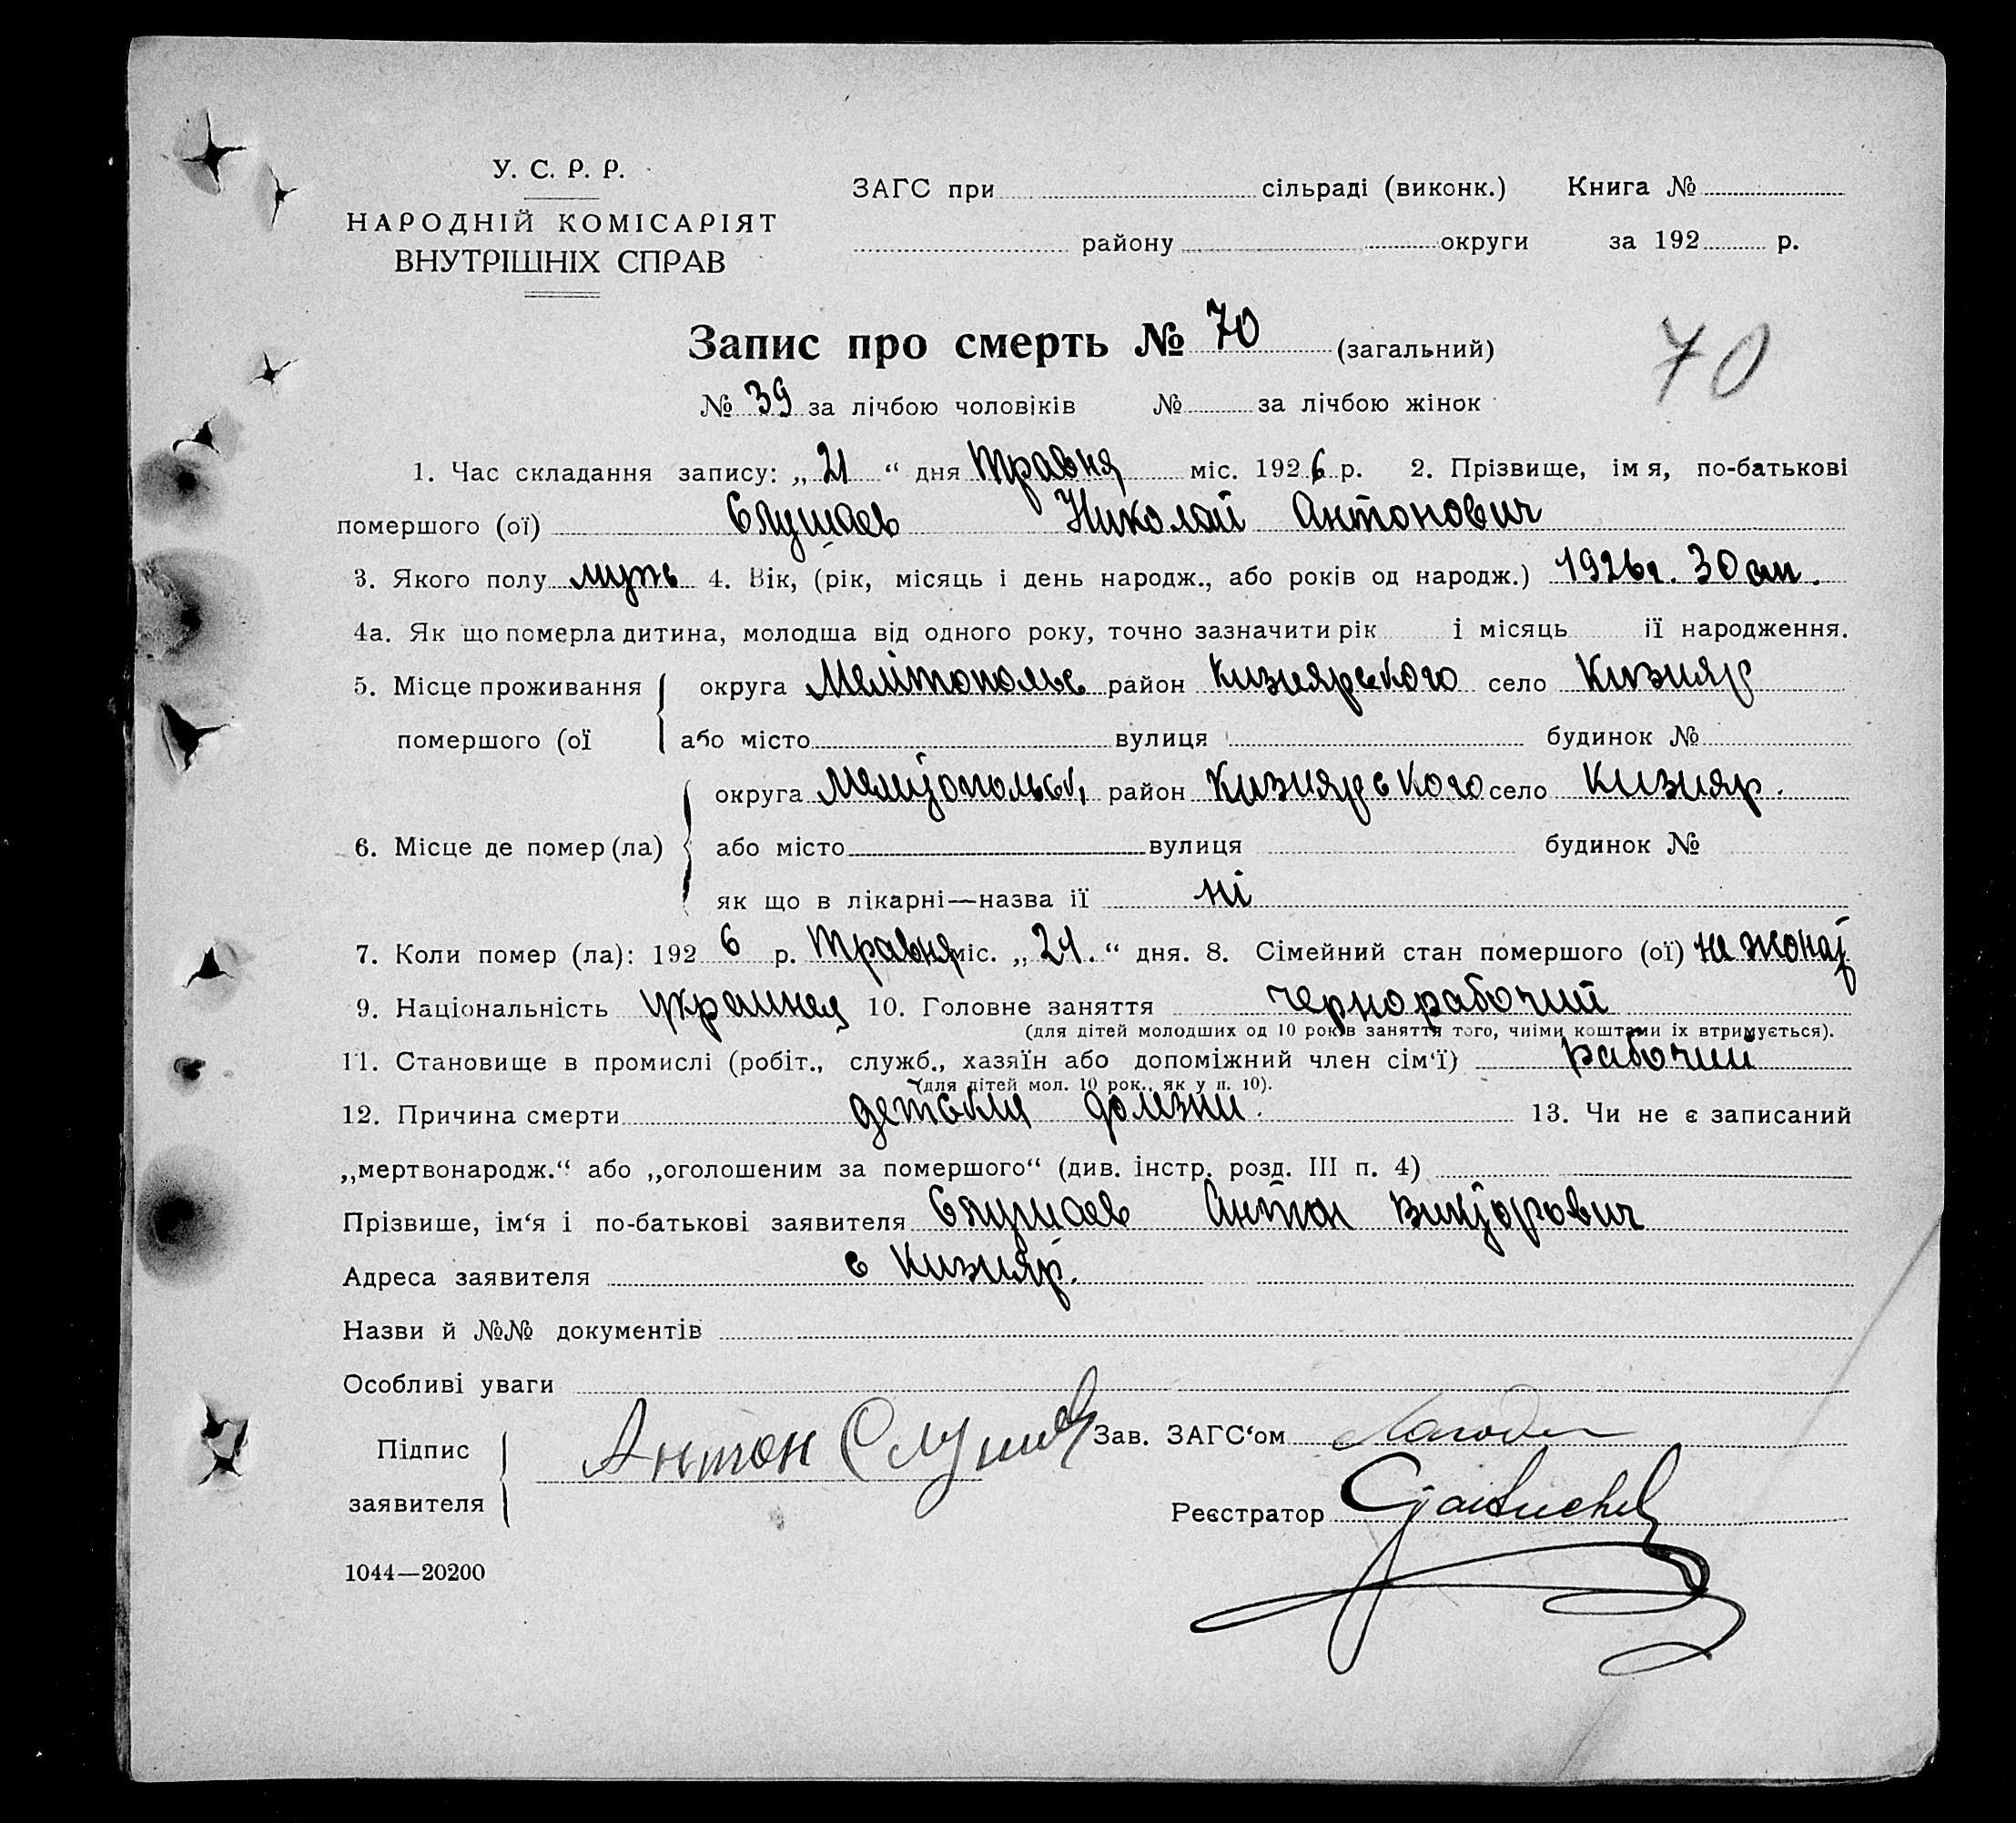 У. С. Р. Р.
НАРОДНІЙ КОМІСАРІЯТ
ВНУТРІШНІХ СПРАВ
ЗАГС при сільраді (виконк.) Книга №
району округи за 192 р.
Запис про смерть № 70 (загальний)
70
№ 39 за лічбою чоловіків № за лічбою жінок
1. Час складання запису: „ 21 “ дня Травня міс. 1926 р. 2. Прізвище, імя, по-батькові
помершого (ої) Слушаев Николай Антонович
3. Якого полу мужь 4. Вік, (рік, місяць і день народж., або років од народж.) 1926 г. 30 ап.
4а. Як що померла дитина, молодша від одного року, точно зазначити рік і місяць її народження.
5. Місце проживання округа район Кизиярского село Кизияр
помершого (ої або місто вулиця будинок №
округа район Кизиярского село Кизияр.
6. Місце де помер (ла) або місто вулиця будинок №
як що в лікарні—назва її ні
7. Коли помер (ла): 192 6 р. Травня міс. „ 21. “ дня. 8. Сімейний стан помершого (ої)
9. Національність 10. Головне заняття чернорабочий
(для дітей молодших од 10 років заняття того, чиїми коштами їх втримується).
11. Становище в промислі (робіт., служб., хазяїн або допоміжний член сім‘ї) рабочий
(для дітей мол. 10 рок., як у п. 10).
12. Причина смерти 13. Чи не є записаний
„мертвонародж.“ або „оголошеним за помершого“ (див. інстр. розд. III п. 4)
Прізвище, ім‘я і по-батькові заявителя Слушаев Антон Викторович
Адреса заявителя с Кизияр.
Назви й №№ документів
Особливі уваги
Підпис
заявителя
Антон Слушаев
Зав. ЗАГС‘ом
Реєстратор
1044—20200